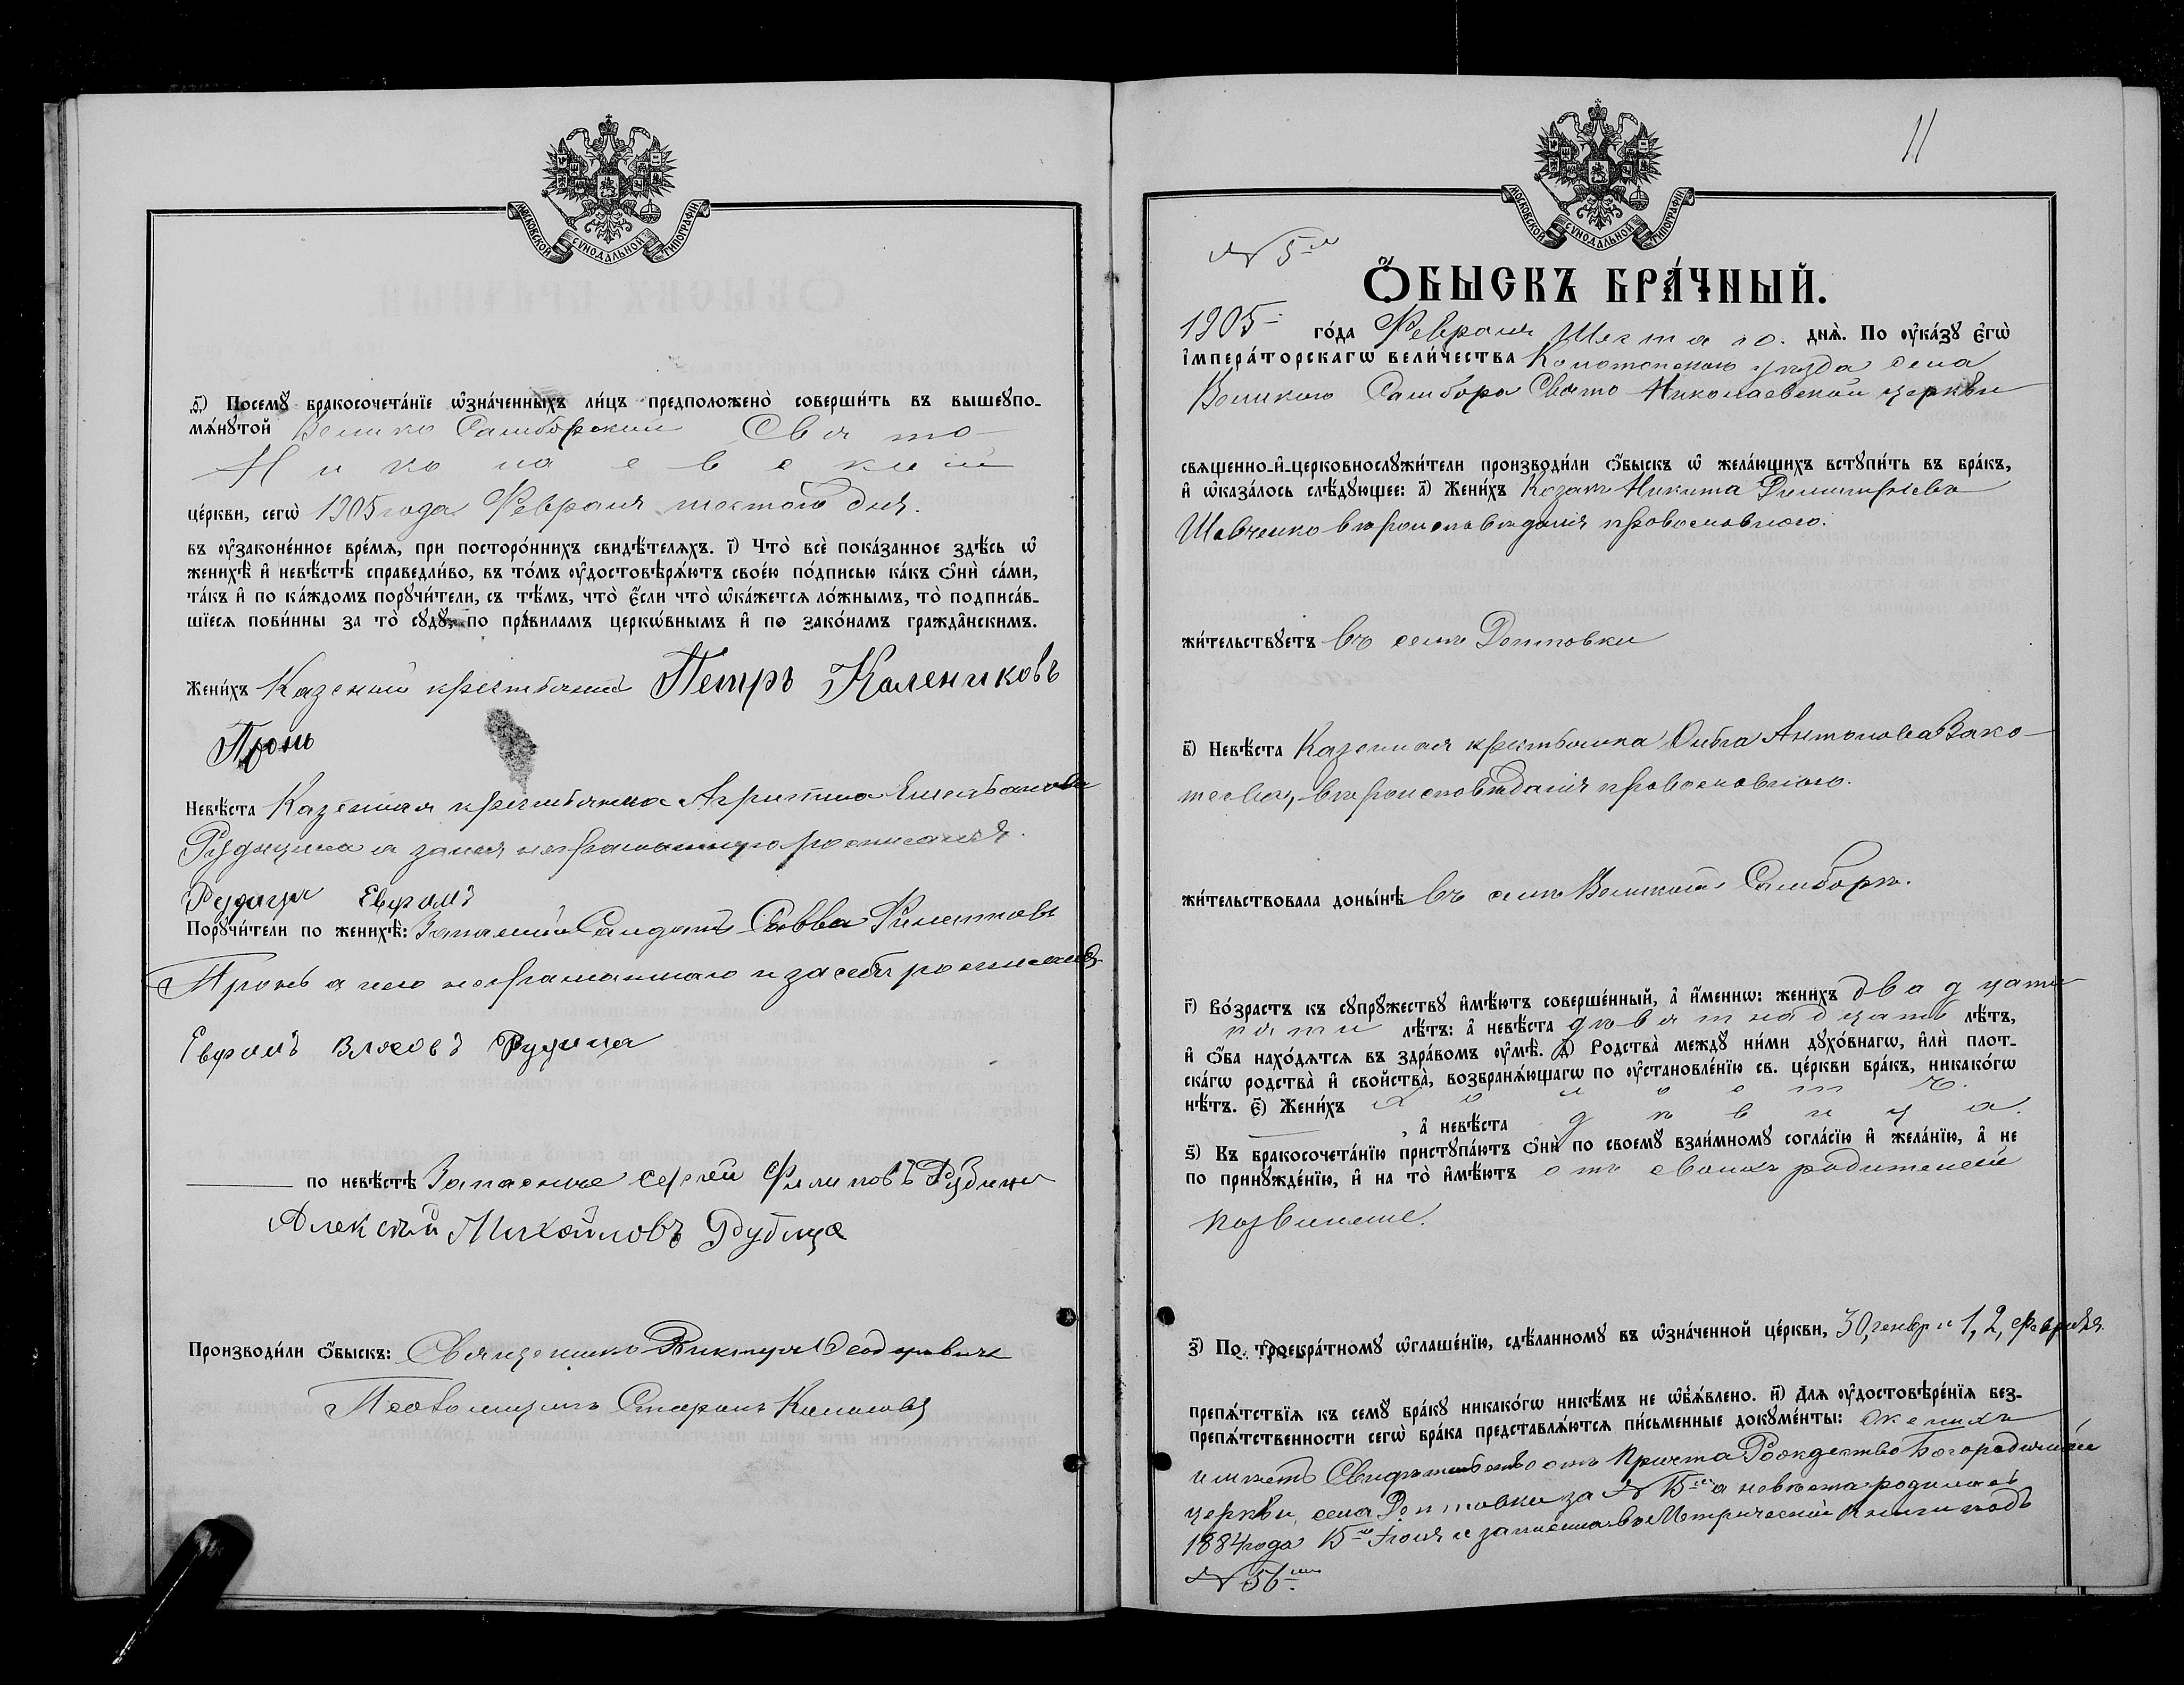 МОСКОВСКОЙ СУНОДАЛЬНОЙ ТИПОГРАФІИ
ѳ҃) Посемꙋ̀ бракосочета́нїе ѡ҆зна́ченныхъ ли́цъ предположено̀ соверши́ть въ вышеꙋпо-
мѧ́нꙋтой Велико Самборской Свято-
Николаевской
це́ркви, сегѡ̀ 1905 года Февраля шестого дня.
въ ᲂу҆законе́нное вре́мѧ, при посторо́ннихъ свидѣ́телѧхъ. і҃) Что̀ всѐ пока́занное здѣ́сь ѡ҆
женихѣ̀ и҆ невѣ́стѣ справедли́во, въ то́мъ ᲂу҆достовѣрѧ́ютъ свое́ю по́дписью ка́къ ѻ҆нѝ са́ми,
та́къ и҆ по ка́ждомъ порꙋчи́тели, съ тѣ́мъ, что̀ є҆́сли что̀ ѡ҆ка́жетсѧ ло́жнымъ, то̀ подписа́в-
шїесѧ пови́нны за то̀ сꙋдꙋ̀ по пра́виламъ церкѡ́внымъ и҆ по зако́намъ гражда̂нскимъ.
Жени́хъ Казеный крестьянинъ Петръ Калениковъ
Пронь
Невѣ́ста Казенная крестьянка Агрипина Емельянова
Рудицина а занея неграматную росписался
Рудица Евфимъ
Порꙋчи́тели по женихѣ̀: Запасный Салдатъ Савва Филиповъ
Пронь а него неграматнаго и засебя росписался
Евфимъ Власовъ Рудица
по невѣ́стѣ Запасные Сергей Филиповъ Рудица
Алексѣй Михайловъ Рудица
Производи́ли ѻ҆́быскъ: Священникъ Викторъ Ѳеодоровичъ
Псаломщикъ Стефанъ
МОСКОВСКОЙ СУНОДАЛЬНОЙ ТИПОГРАФІИ
11
№ 5й
Ѻ҆́БЫСКЪ БРА́ЧНЫЙ.
1905 го́да Февраля Шестаго. днѧ̀. По ᲂу҆ка́зꙋ є҆гѡ̀
і҆мпера́торскагѡ вели́чества Конотопского уѣзда села
Великого Самбора Свято Николаевской церкви
свѧщенно-и҆-церковнослꙋжи́тели производи́ли ѻ҆́быскъ ѡ҆ жела́ющихъ встꙋпи́ть въ бра́къ,
и҆ ѡ҆каза́лось слѣ́дꙋющее: а҃) Жени́хъ Козакъ Никита Димитріевъ
Шевченко вѣроисповѣданія православного.
жи́тельствꙋетъ въ селѣ Дептовки
в҃) Невѣ́ста Казенная крестьянка Антонова Зако-
вѣроисповѣданія православного.
жи́тельствовала доны́нѣ въ селѣ Великомъ Самборѣ.
г҃) Во́зрастъ къ сꙋпрꙋ́жествꙋ и҆мѣ́ютъ соверше́нный, а҆ и҆́меннѡ: жени́хъ двадцати
пяти лѣ́тъ: а҆ невѣ́ста девятнадцать лѣ́тъ,
и҆ ѻ҆́ба нахо́дѧтсѧ въ здра́вомъ ᲂу҆мѣ̀. д҃) Родства̀ междꙋ̀ ни́ми дꙋхо́внагѡ, и҆лѝ плот-
ска́гѡ родства̀ и҆ сво́йства, возбранѧ́ющагѡ по ᲂу҆становле́нїю св. це́ркви бра́къ, никако́гѡ
нѣ́тъ. є҃) Жени́хъ холостъ.
, а҆ невѣ́ста дѣвица.
ѕ҃) Къ бракосочета́нїю пристꙋпа́ютъ ѻ҆нѝ по своемꙋ̀ взаи́мномꙋ согла́сїю и҆ жела́нїю, а҆ не
по принꙋжде́нїю, и҆ на то̀ и҆мѣ́ютъ отъ своихъ родителей
позволеніе.
з҃) По троекра́тномꙋ ѡ҆глаше́нїю, сдѣ́ланномꙋ въ ѡ҆зна́ченной це́ркви, 30, генвр. и 1, 2, февраля.
препѧ́тствїѧ къ семꙋ̀ бра́кꙋ никако́гѡ никѣ́мъ не ѡ҆б̾ѧ́влено. и҃) Длѧ ᲂу҆достовѣре́нїѧ без-
препѧ́тственности сегѡ̀ бра́ка представлѧ́ютсѧ пи́сьменные докꙋме́нты: женихъ
имѣетъ Свидѣтельство отъ Причта Рождество Богородичной
церкви, села Дептовки за № 15м а невѣста родилась
1884 года 15го Іюля и записана въ Метрической Книги подъ
№ 56мъ.